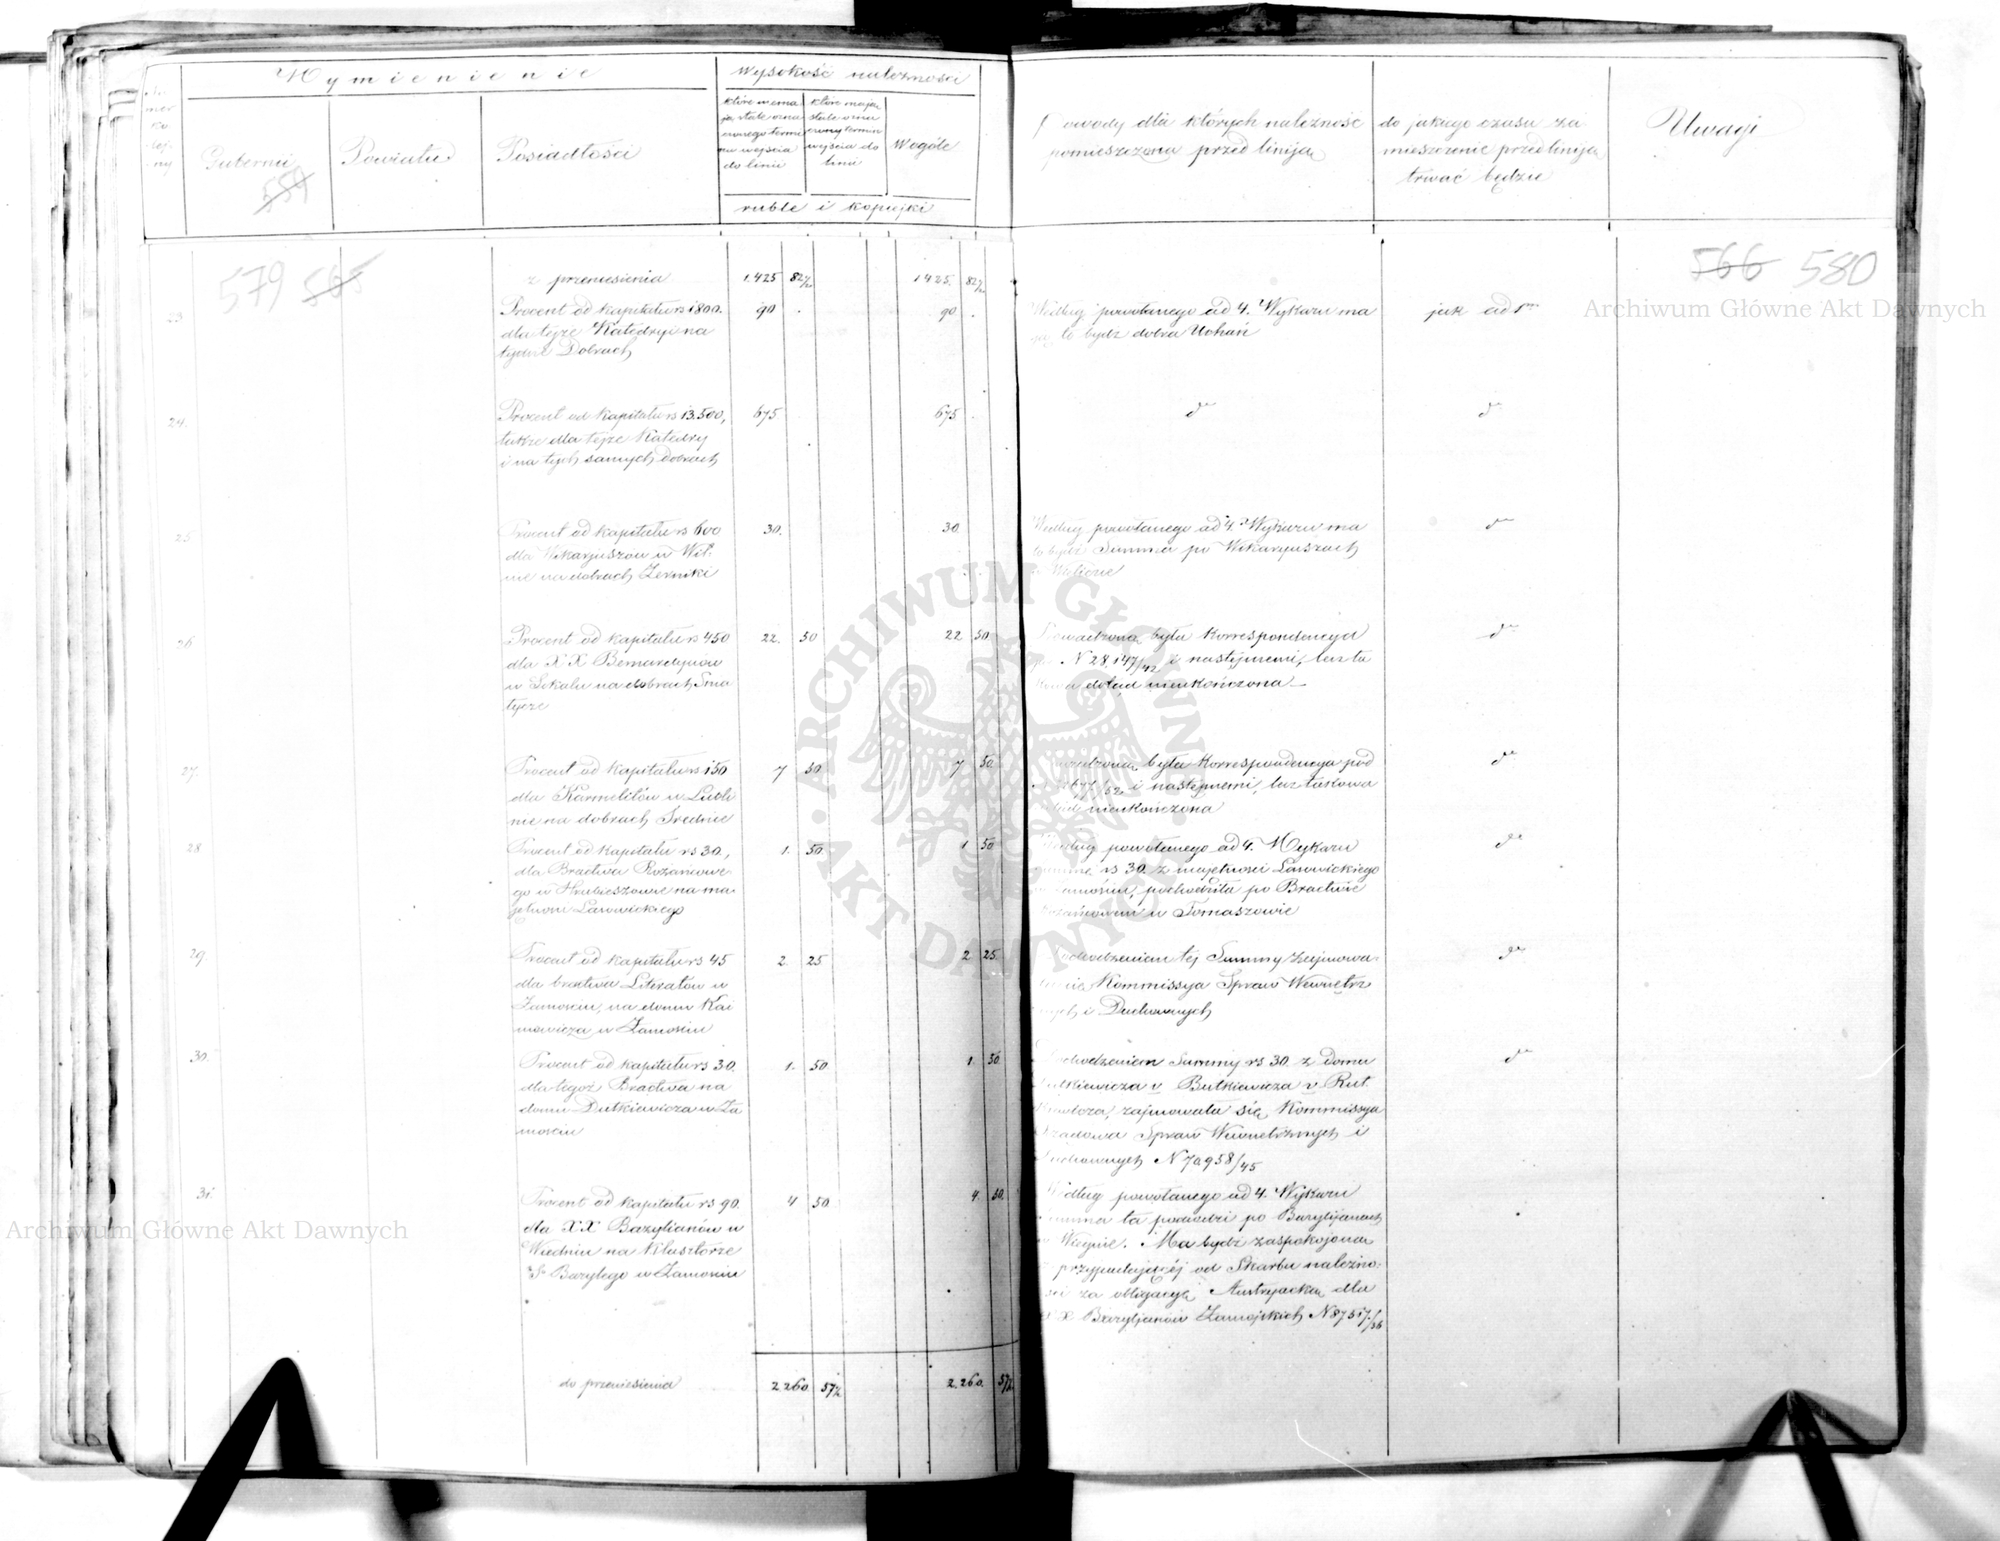 Wymienienie
Wysokość należności
Numer kolejny
Gubernii
Powiatu
Posiadłości
które niemają stale oznaczonego terminu wejścia do linii
które mają stale oznaczony termin wejścia do linii
Wogóle
ruble i kopiejki
Powody dla których należność
pomieszczona przed liniją
do jakiego czasu za
mieszczenie przed liniją
trwać będzie
Uwagi
559
579 565
566 580
Archiwum Główne Akt Dawnych
z przeniesienia 1.425 82½ 1425. 82½
23 Procent od kapitału rs 1800. 90 . 90 .
dla tejże Katedry i na
tychże Dobrach
Według powołanego ad 4. Wykazu ma
to bydź dobra Uchań
jak ad 1m
24. Procent od kapitału rs 13.500, 675 675 .
także dla tejże Katedry
i na tych samych dobrach
do
do
25 Procent od kapitału rs 600 30. 30
dla Wikaryuszów w Wil-
nie na dobrach Żerniki
Według powołanego ad 4. Wykazu ma
to bydź Summa po Wikaryuszach
do
26 Procent od kapitału rs 450 22. 50 22 50
dla XX Bernardynów
w Sokalu na dobrach Sma
tycze
Prowadzona była korrespondencya
N 28.147/42 i następnemi, lecz ta
kowa dotąd nieukończona
do
27. Procent od kapitału rs 150 7 50 7 50
dla Karmelitów w Lubli
nie na dobrach Średnie
Prowadzona była Korrespondencya pod
i następnemi, lecz takowa
nieukończona
do
28 Procent od kapitału rs 30, 1. 50 1 50
dla Bractwa Rożańcowe-
go w Hrubieszowie na ma-
jętności Lanwickiego
Według powołanego ad 4. Wykazu
summa rs 30. z majętności Lanwickiego
w Zamościu, pochodziła po Bractwie
Rożańcowem w Tomaszowie
do
29 Procent od kapitału rs 45 2. 25 2 25.
dla bractwa Literatów w
Zamościu, na domu Kai
mowicza w Zamościu
Dochodzeniem tej Summy zajmowa-
Kommissya Spraw Wewnętrz
nych i Duchownych
do
30 Procent od kapitału rs 30. 1. 50 1. 50
dla tegoż Bractwa na
domu Dutkiewicza w Za
mościu
Dochodzeniem Summy rs 30. z domu
Dutkiewicza v Butkiewicza v Rut
kiewicza, zajmowała się Kommissya
Rządowa Spraw Wewnętrznych i
Duchownych N 7a958/45
do
31. Procent od kapitału rs 90. 4 50 4. 50.
dla XX Bazylianów w
Wiedniu na Klasztorze
Sgo Bazylego w Zamościu
Według powołanego ad 4. Wykazu
summa ta pochodzi po Bazylijanach
w Węgnie. Ma bydź zaspokojona
z przypadającej od Skarbu należno-
ści za obligacyą Austryacką dla
XX Bazylijanów Zamojskich N 87517/36
Archiwum Główne Akt Dawnych
do przeniesienia 2260. 57½ 2.260. 57½
ARCHIWUM GŁÓWNE
AKT DAWNYCH